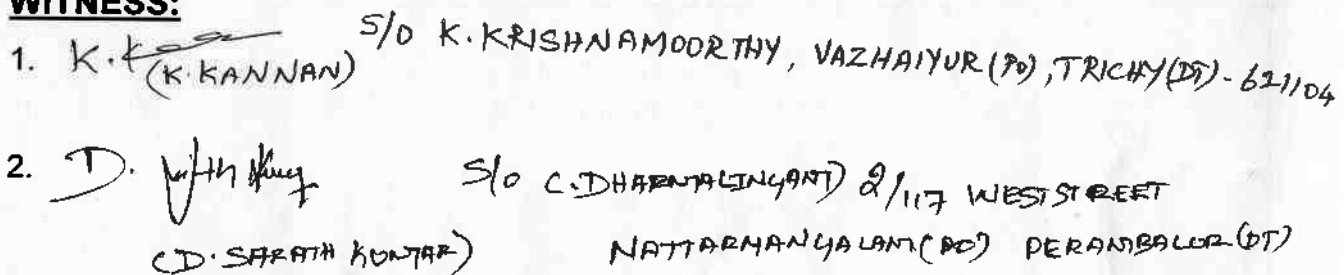 WITNESS:
1. K. K (K. KANNAN) S/O K. KRISHNAMOORTHY, VAZHAIYUR (PO), TRICHY (DT) - 621104
2. D. S/O C. DHARMALINGAM) 2/117 WEST STREET
(D. SARATH KUMAR) NATTARMANGALAM (PO) PERAMBALUR (DT)